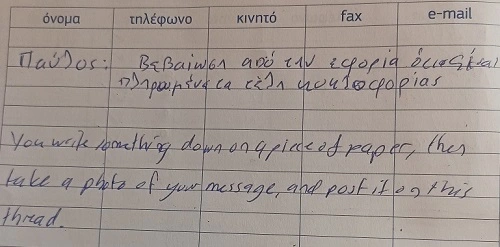 όνομα τηλέφωνο κινητό fax e-mail
Παύλος: Βεβαίωση από την εφορία ότι είναι
πληρωμένα τα τέλη κυκλοφορίας
You write something down on a piece of paper, then
take a photo of your message, and post it on this
thread.